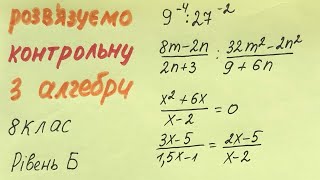 розв'язуємо
контрольну
з алгебри
8 клас
Рівень Б
9⁻⁴ : 27⁻²
(8m-2n)/(2n+3) : (32m²-2n²)/(9+6n)
(x²+6x)/(x-2) = 0
(3x-5)/(1,5x-1) = (2x-5)/(x-2)